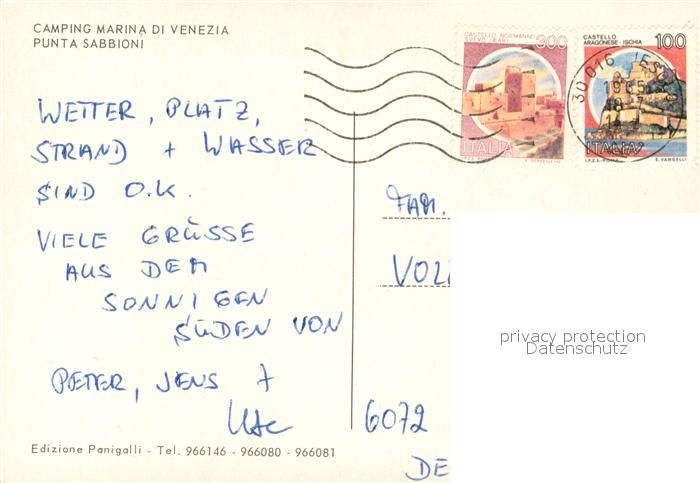 CAMPING MARINA DI VENEZIA
PUNTA SABBIONI
CASTELLO NORMANNO
SVEVO - BARI 300
ITALIA
CASTELLO
ARAGONESE - ISCHIA 100
ITALIA
I.P.Z.S. - ROMA E. VANGELLI
30016 JES
WETTER, PLATZ,
STRAND + WASSER
SIND O.K.
VIELE GRÜSSE
AUS DEM
SONNIGEN
SÜDEN VON
PETER, JENS +
Ute
FAM.
VOL
6072
DE
privacy protection
Datenschutz
Edizione Panigalli - Tel. 966146 - 966080 - 966081